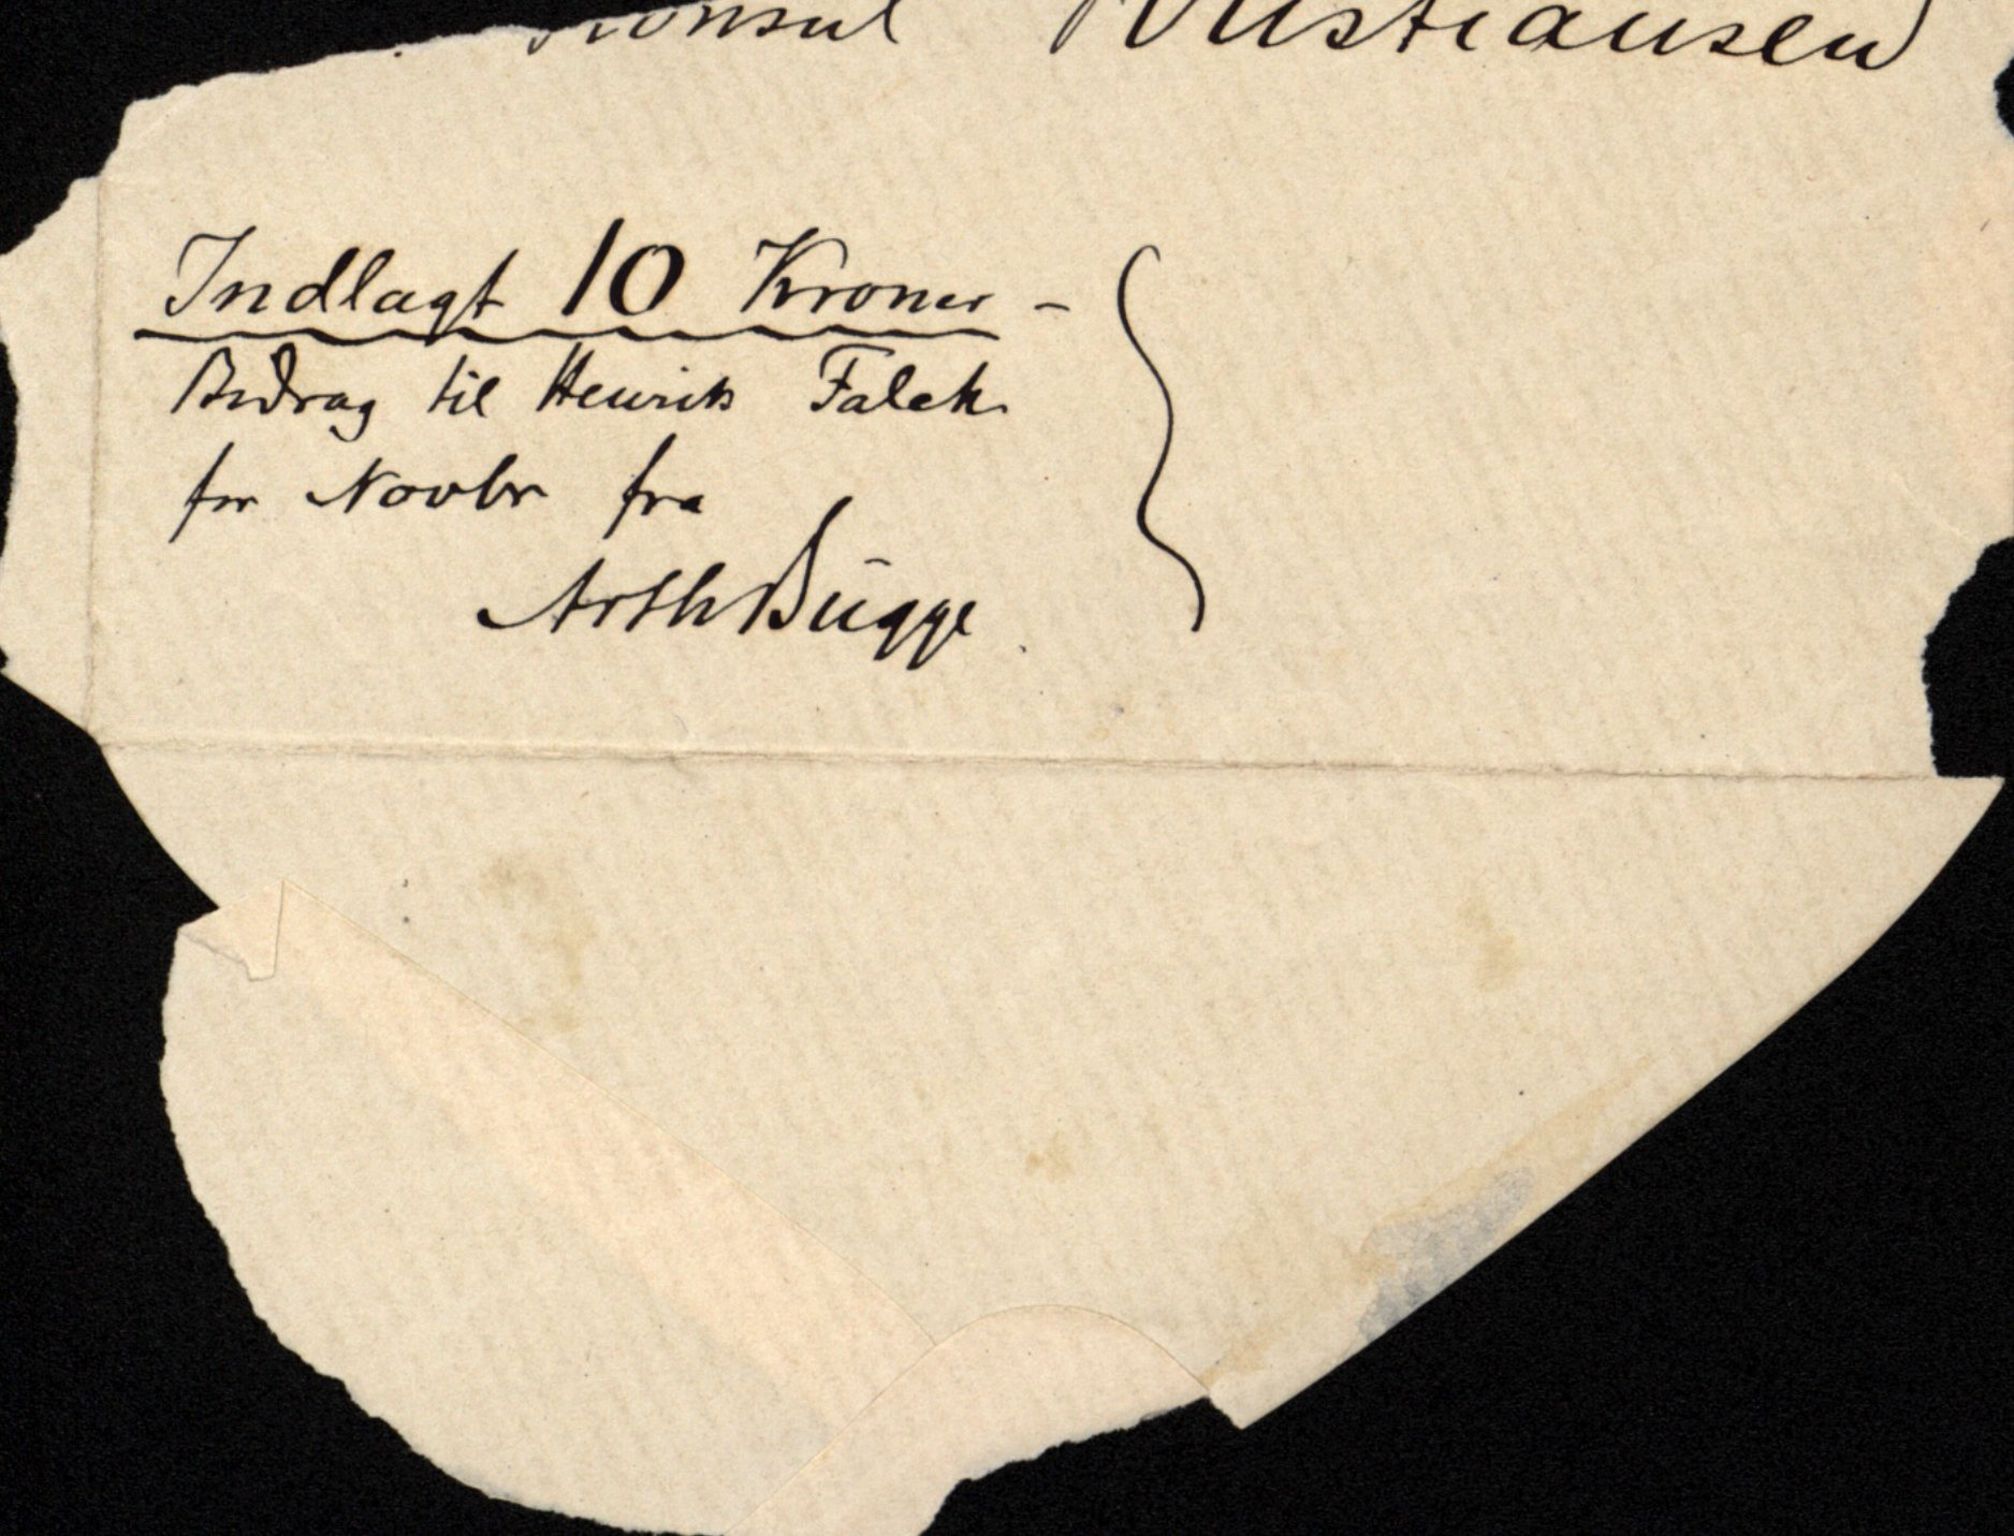 Konsul Kristiansen
Indlagt 10 Kroner -
Bidrag til Henrik Falck
for Novbr fra
Arth Bugge